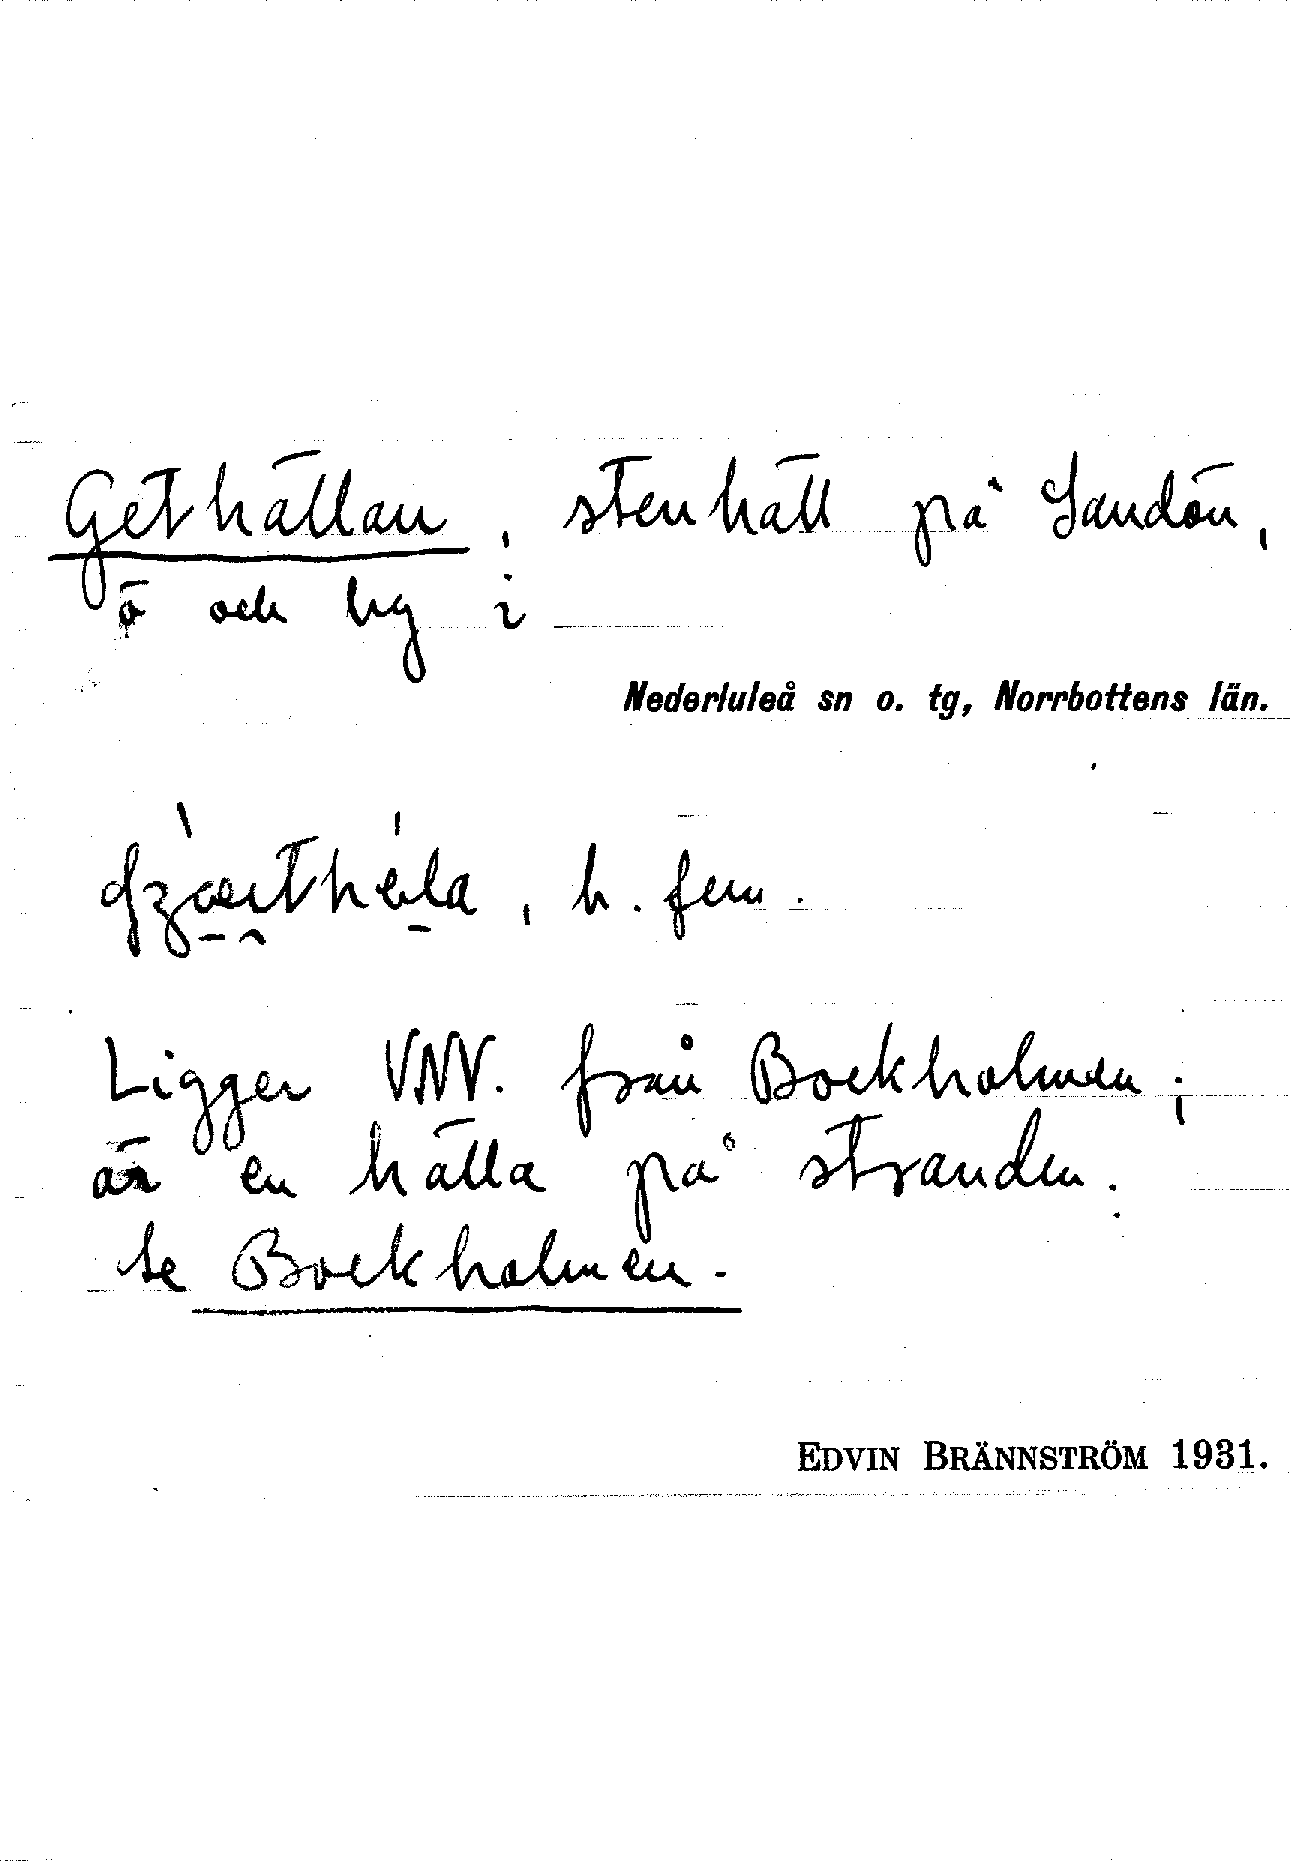 Gethällan, stenhäll på Sandön,
ö och by i
Nederluleå sn o. tg, Norrbottens län.
b. fem.
Ligger VNV. från Bockholmen;
är en hälla på stranden.
Se Bockholmen.
EDVIN BRÄNNSTRÖM 1931.